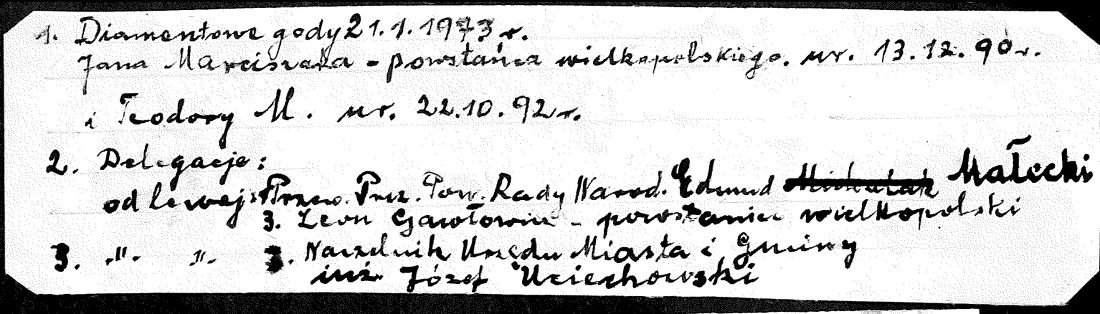 1. Diamentowe gody 21.1.1973 r.
Jana Marciszaka - powstańca wielkopolskiego. ur. 13.12.90 r.
i Teodory M. ur. 22.10.92 r.
2. Delegacje:
od lewej: Przew. Prez. Pow. Rady Narod. Edmud Michalak Małecki
3. Leon Gawłowicz - powstaniec wielkopolski
3. -"- -"- 3. Naczelnik Urzędu Miasta i Gminy
inż. Józef Uciechowski